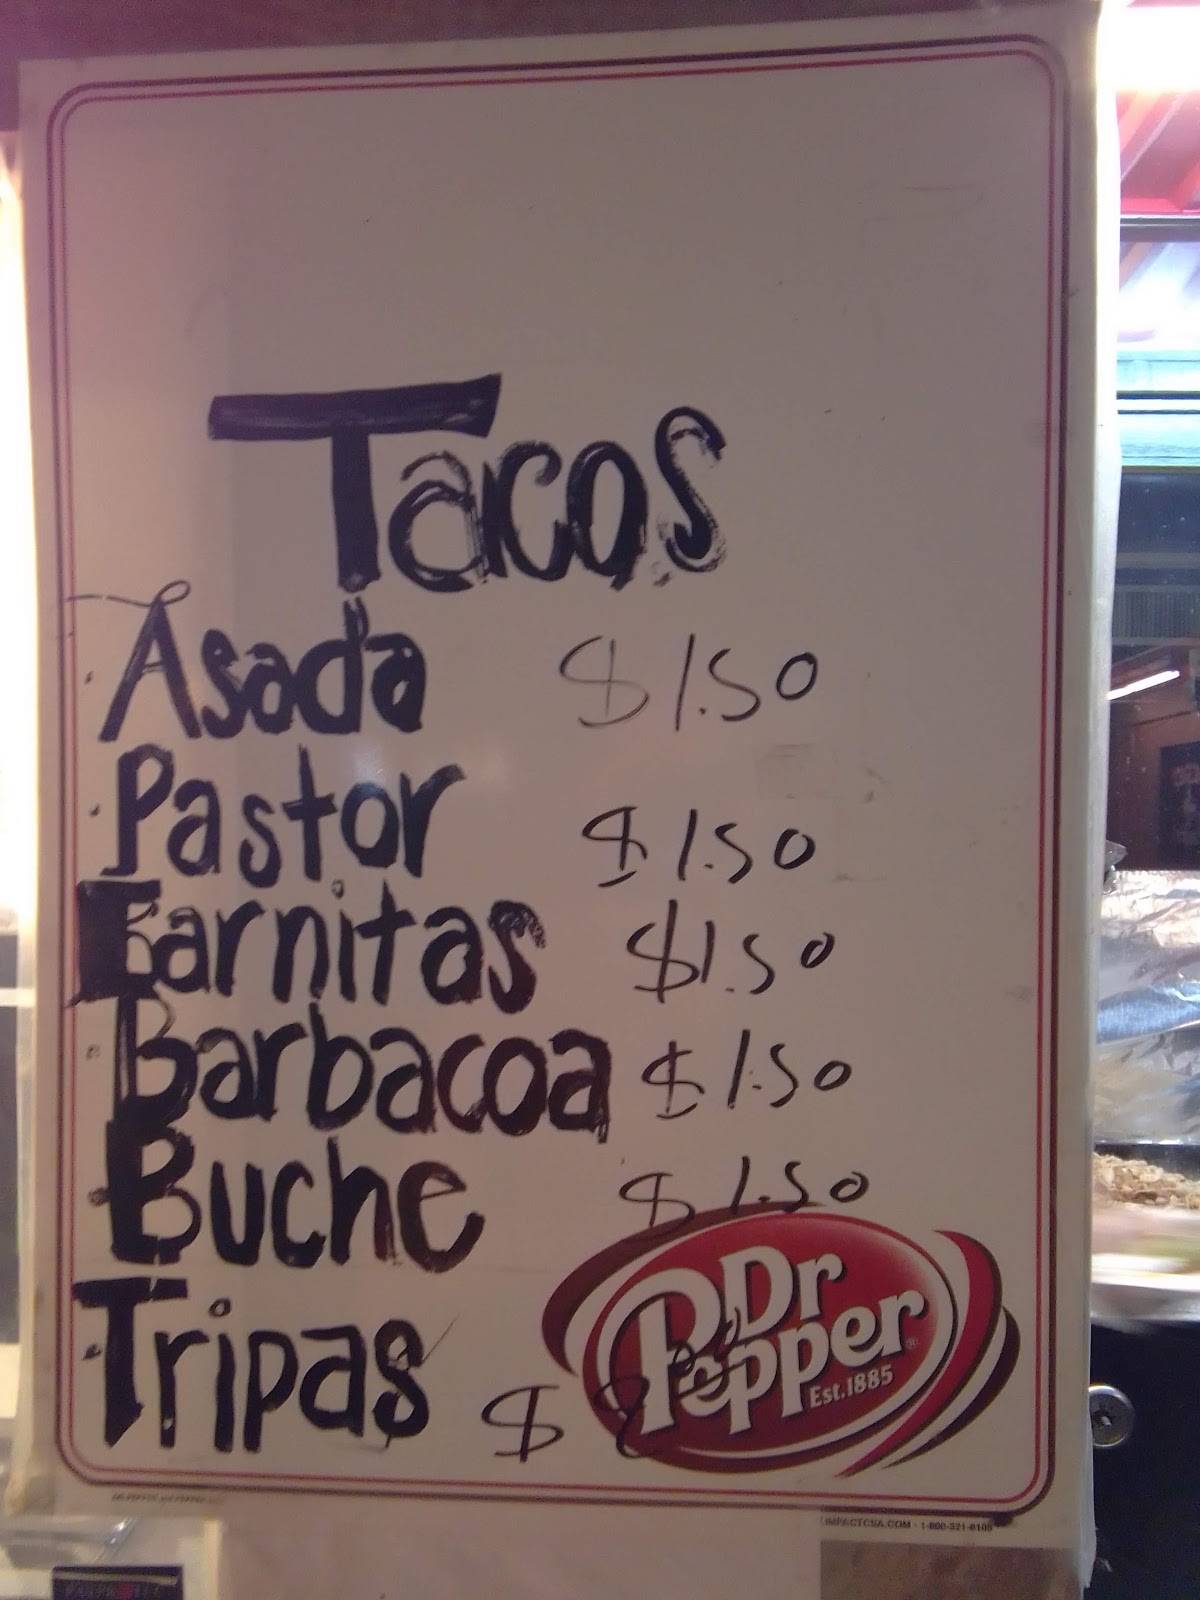 Tacos
Asada $1.50
Pastor $1.50
Carnitas $1.50
Barbacoa $1.50
Buche $1.50
Tripas $
Dr Pepper
Est.1885
IMPACTCVA.COM - 1-800-321-6108